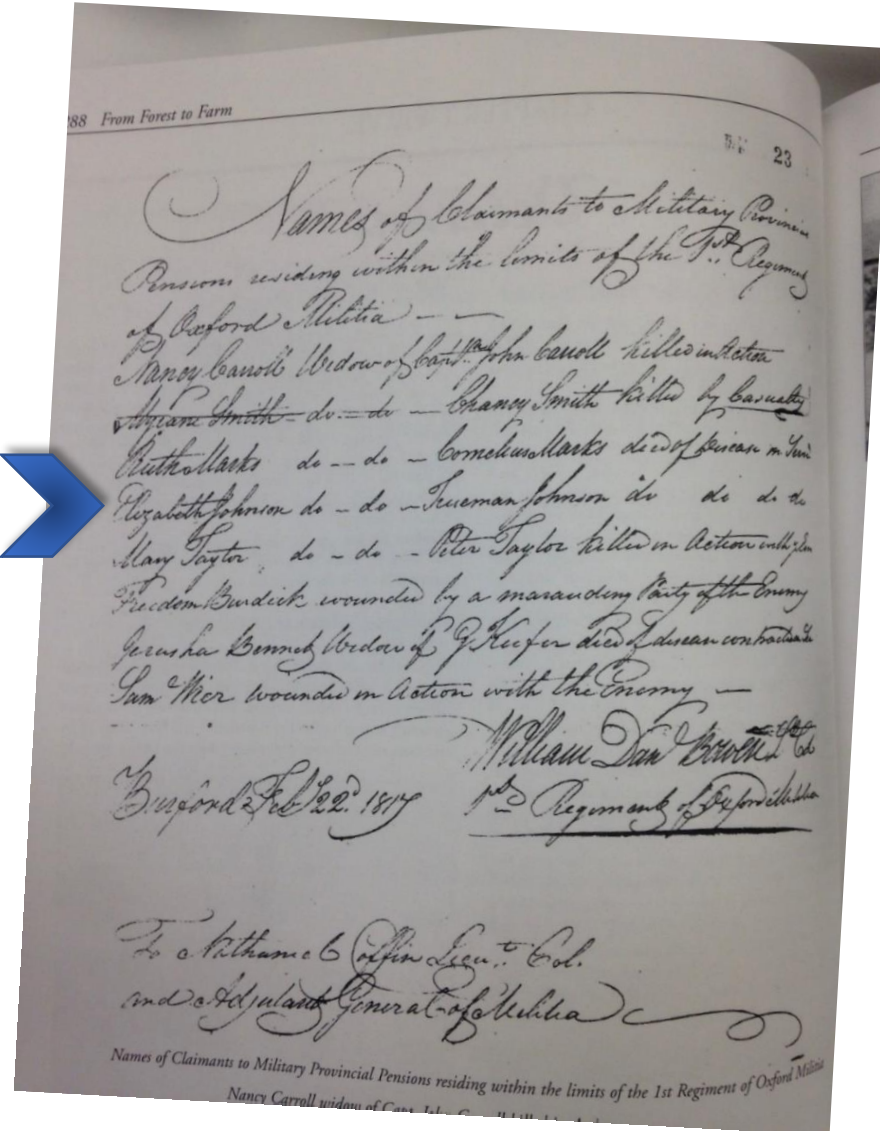 288 From Forest to Farm
23
Names of Claimants to Military Provincial
Pensions residing within the limits of the 1st. Regiment
of Oxford Militia — —
Nancy Carroll Widow of Capt. John Carroll killed in Action
Smith do. — do — Chancy Smith killed by Casualty
Ruth Marks do — do — Cornelius Marks died of Disease in
Elizabeth Johnson do — do — Trueman Johnson do do do do
Mary Taylor, do — do — Peter Taylor killed in Action with
Freedom Burdick wounded by a marauding Party of the Enemy
Jerusha Bennet Widow of G Keefer died of disease
Saml Wier wounded in Action with the Enemy —
William Danl Bowen Lt Col
Burford Feby 22d. 1817
1st Regiment of Oxford Militia
To Nathaniel Coffin Lieut. Col.
and Adjutant General of Militia
Names of Claimants to Military Provincial Pensions residing within the limits of the 1st Regiment of Oxford Militia
Nancy Carroll widow of Capt. John Carroll killed in